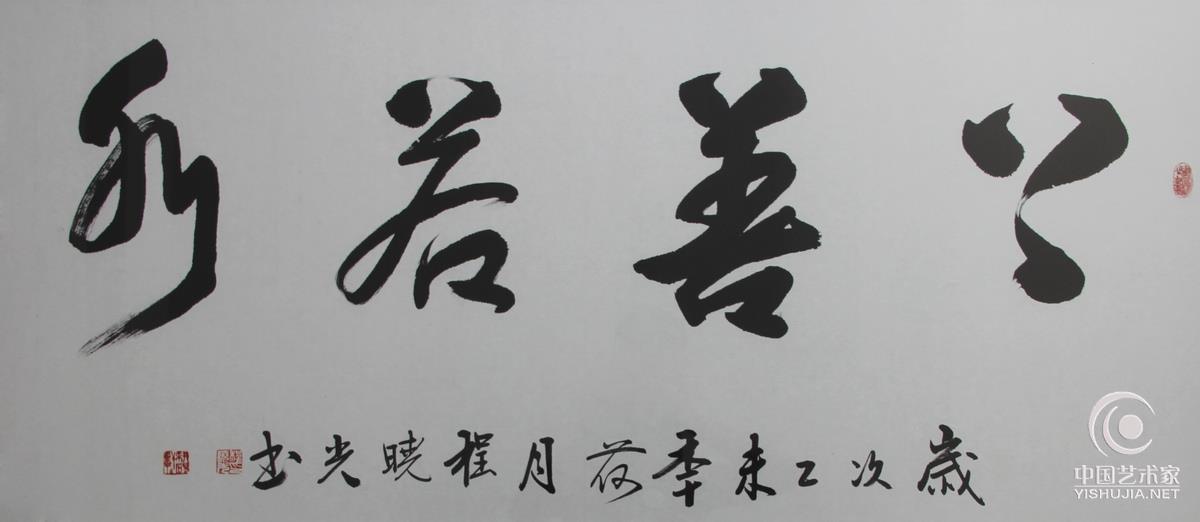 上善若水
歲次乙未秊荷月程曉光书
中国艺术家
YISHUJIA.NET